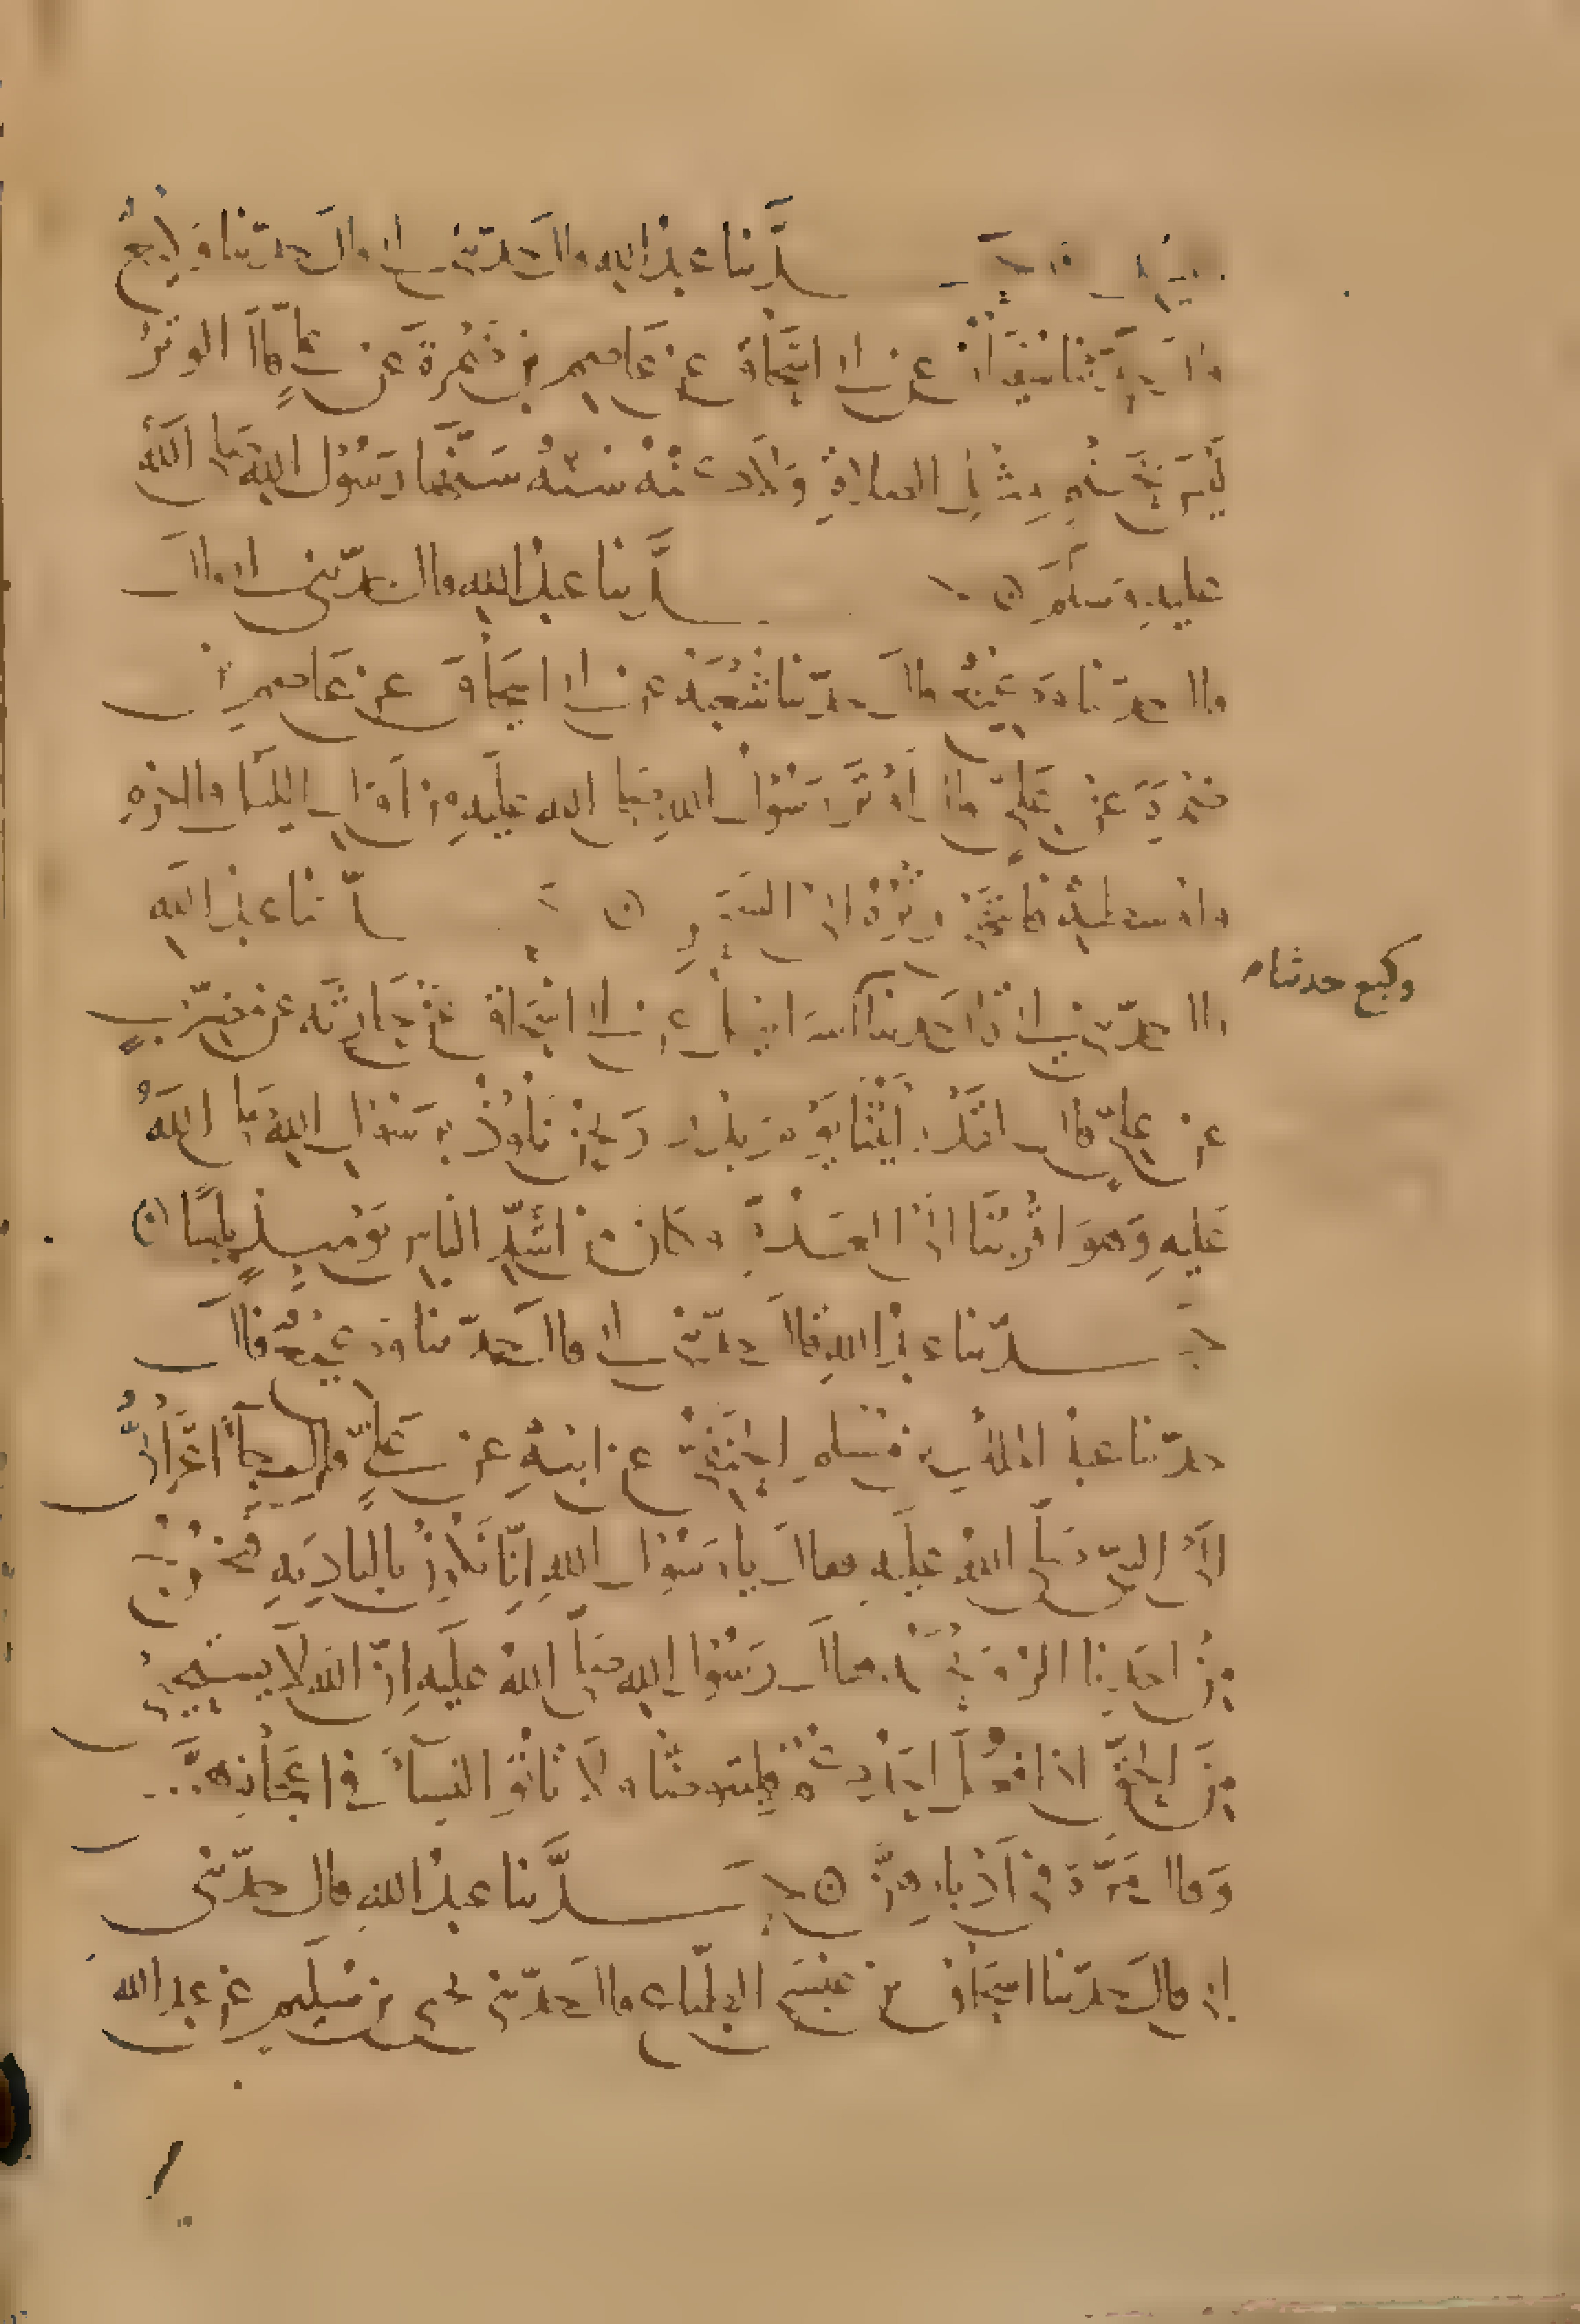 حدثنا عبد الله قال حدثني ابي قال حدثنا وكيع
قال حدثنا سفيان عن ابي اسحاق عن عاصم بن ضمرة عن علي قال الوتر
ليس بحتم مثل الصلاة ولكنه سنة سنها رسول الله صلى الله
عليه وسلم حدثنا عبد الله قال حدثني ابي قال
قال حدثنا وكيع قال حدثنا شعبة عن ابي اسحاق عن عاصم بن
ضمرة عن علي قال اوتر رسول الله صلى الله عليه من اول الليل واخره
واوسطه فانتهى وتره الى السحر حدثنا عبد الله
وكيع حدثنا
قال حدثني ابي قال حدثنا اسرائيل عن ابي اسحاق عن حارثة بن مضرب
عن علي قال لقد رايتنا يوم بدر ونحن نلوذ برسول الله صلى الله
عليه وهو اقربنا الى العدو وكان من اشد الناس يومئذ باسا
حدثنا عبد الله قال حدثني ابي قال حدثنا وكيع قال
حدثنا عبد الملك بن مسلم الحنفي عن ابيه عن علي قال جا اعرابي
الى النبي صلى الله عليه فقال يا رسول الله انا نكون بالبادية فتخرج
من احدنا الرويحة فقال رسول الله صلى الله عليه ان الله لا يستحيي
من الحق اذا فعل احدكم فليتوضا ولا تاتوا النساء في اعجازهن
وقال مرة في ادبارهن حدثنا عبد الله قال حدثني
ابي قال حدثنا اسحاق بن عيسى الطباع قال حدثني يحيى بن سليم عن عبد الله